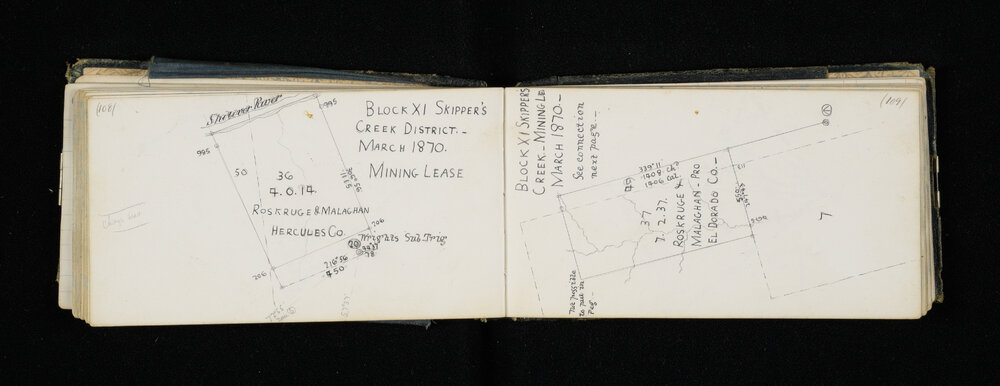 (108)
Shotover River
995
995
BLOCK XI SKIPPER'S
CREEK DISTRICT.-
MARCH 1870.
MINING LEASE
50
36
7.0.14
ROSKRUGE & MALAGHAN
HERCULES CO.
706
Wrights Sub Trig
20
706
216°56
750
BLOCK XI SKIPPERS
CREEK - MINING LE
MARCH 1870 -
See connection
next page. -
(109)
339°11
1408
1406 Cal
37
7. 2. 37.
ROSKRUGE &
MALAGHAN - PRO
EL DORADO CO. -
7
Not possible
to put in
Peg -